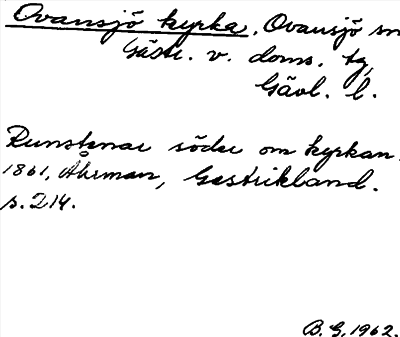 Ovansjö kyrka, Ovansjö sn
Gästr. v. doms. tg,
Gävl. l.
Runstenar söder om kyrkan.
1861, Åhrman, Gestrikland.
s. 214.
B. G. 1962.